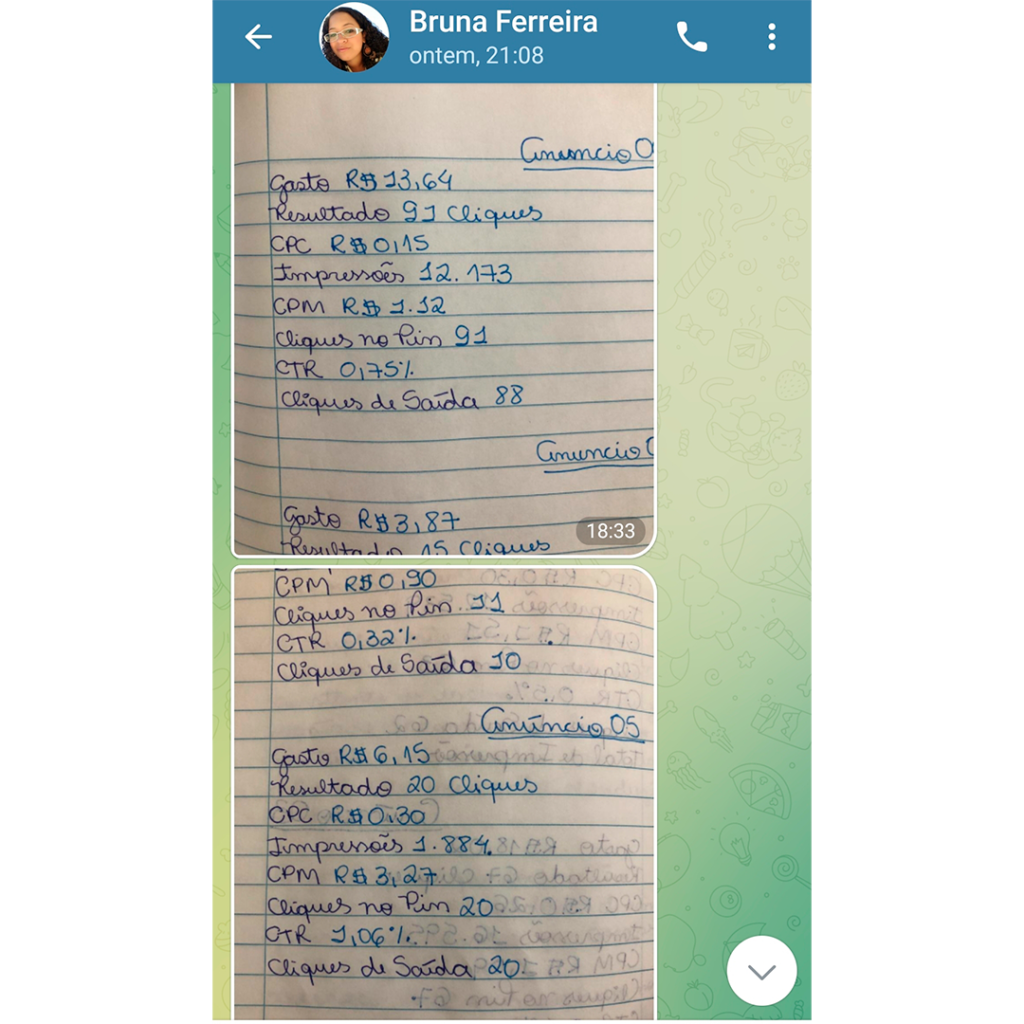 Bruna Ferreira
ontem, 21:08
Anuncio 0
Gasto R$ 13,64
Resultado 91 Cliques
CPC R$ 0,15
Impressões 12.173
CPM R$ 1.12
Cliques no Pin 91
CTR 0,75%
Cliques de Saída 88
Anuncio
Gasto R$3,87
Resultado 15 Cliques
18:33
CPM R$ 0,90
Cliques no Pin 11
CTR 0,32%
Cliques de Saída 10
Anúncio 05
Gasto R$ 6,15
Resultado 20 Cliques
CPC R$ 0,30
Impressões 1.884
CPM R$ 3,27
Cliques no Pin 20
CTR 1,06%
Cliques de Saída 20